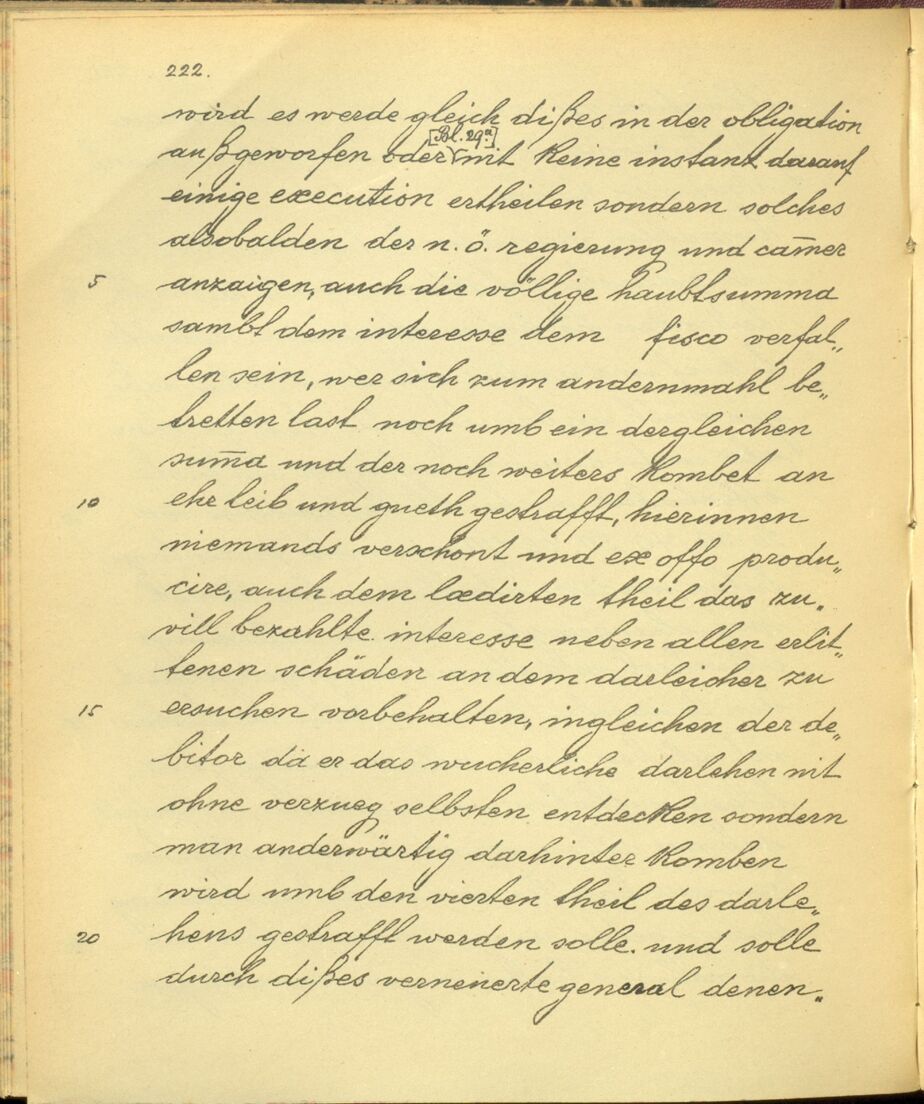 222.
wird es werde gleich dißes in der obligation
[Bl. 29a]
außgeworfen oder nit keine instanz darauf
einige execution ertheilen sondern solches
alsobalden der n. ö. regierung und cam̅er
5 anzaigen, auch die völlige haubtsumma
sambt dem interesse dem fisco verfal„
len sein, wer sich zum andernmahl be„
tretten last noch umb ein dergleichen
sum̅a und der noch weiters kombet an
10 ehr leib und gueth gestrafft, hierinnen
niemands verschont und ex offo produ„
cire, auch dem lædirten theil das zu„
vill bezahlte interesse neben allen erlit„
tenen schäden an dem darleicher zu
15 ersuchen vorbehalten, ingleichen der de„
bitor da er das wucherliche darlehen nit
ohne verzueg selbsten entdecken sondern
man anderwärtig darhinter komben
wird umb den vierten theil des darle„
20 hens gestrafft werden solle. und solle
durch dißes verneuerte general denen„